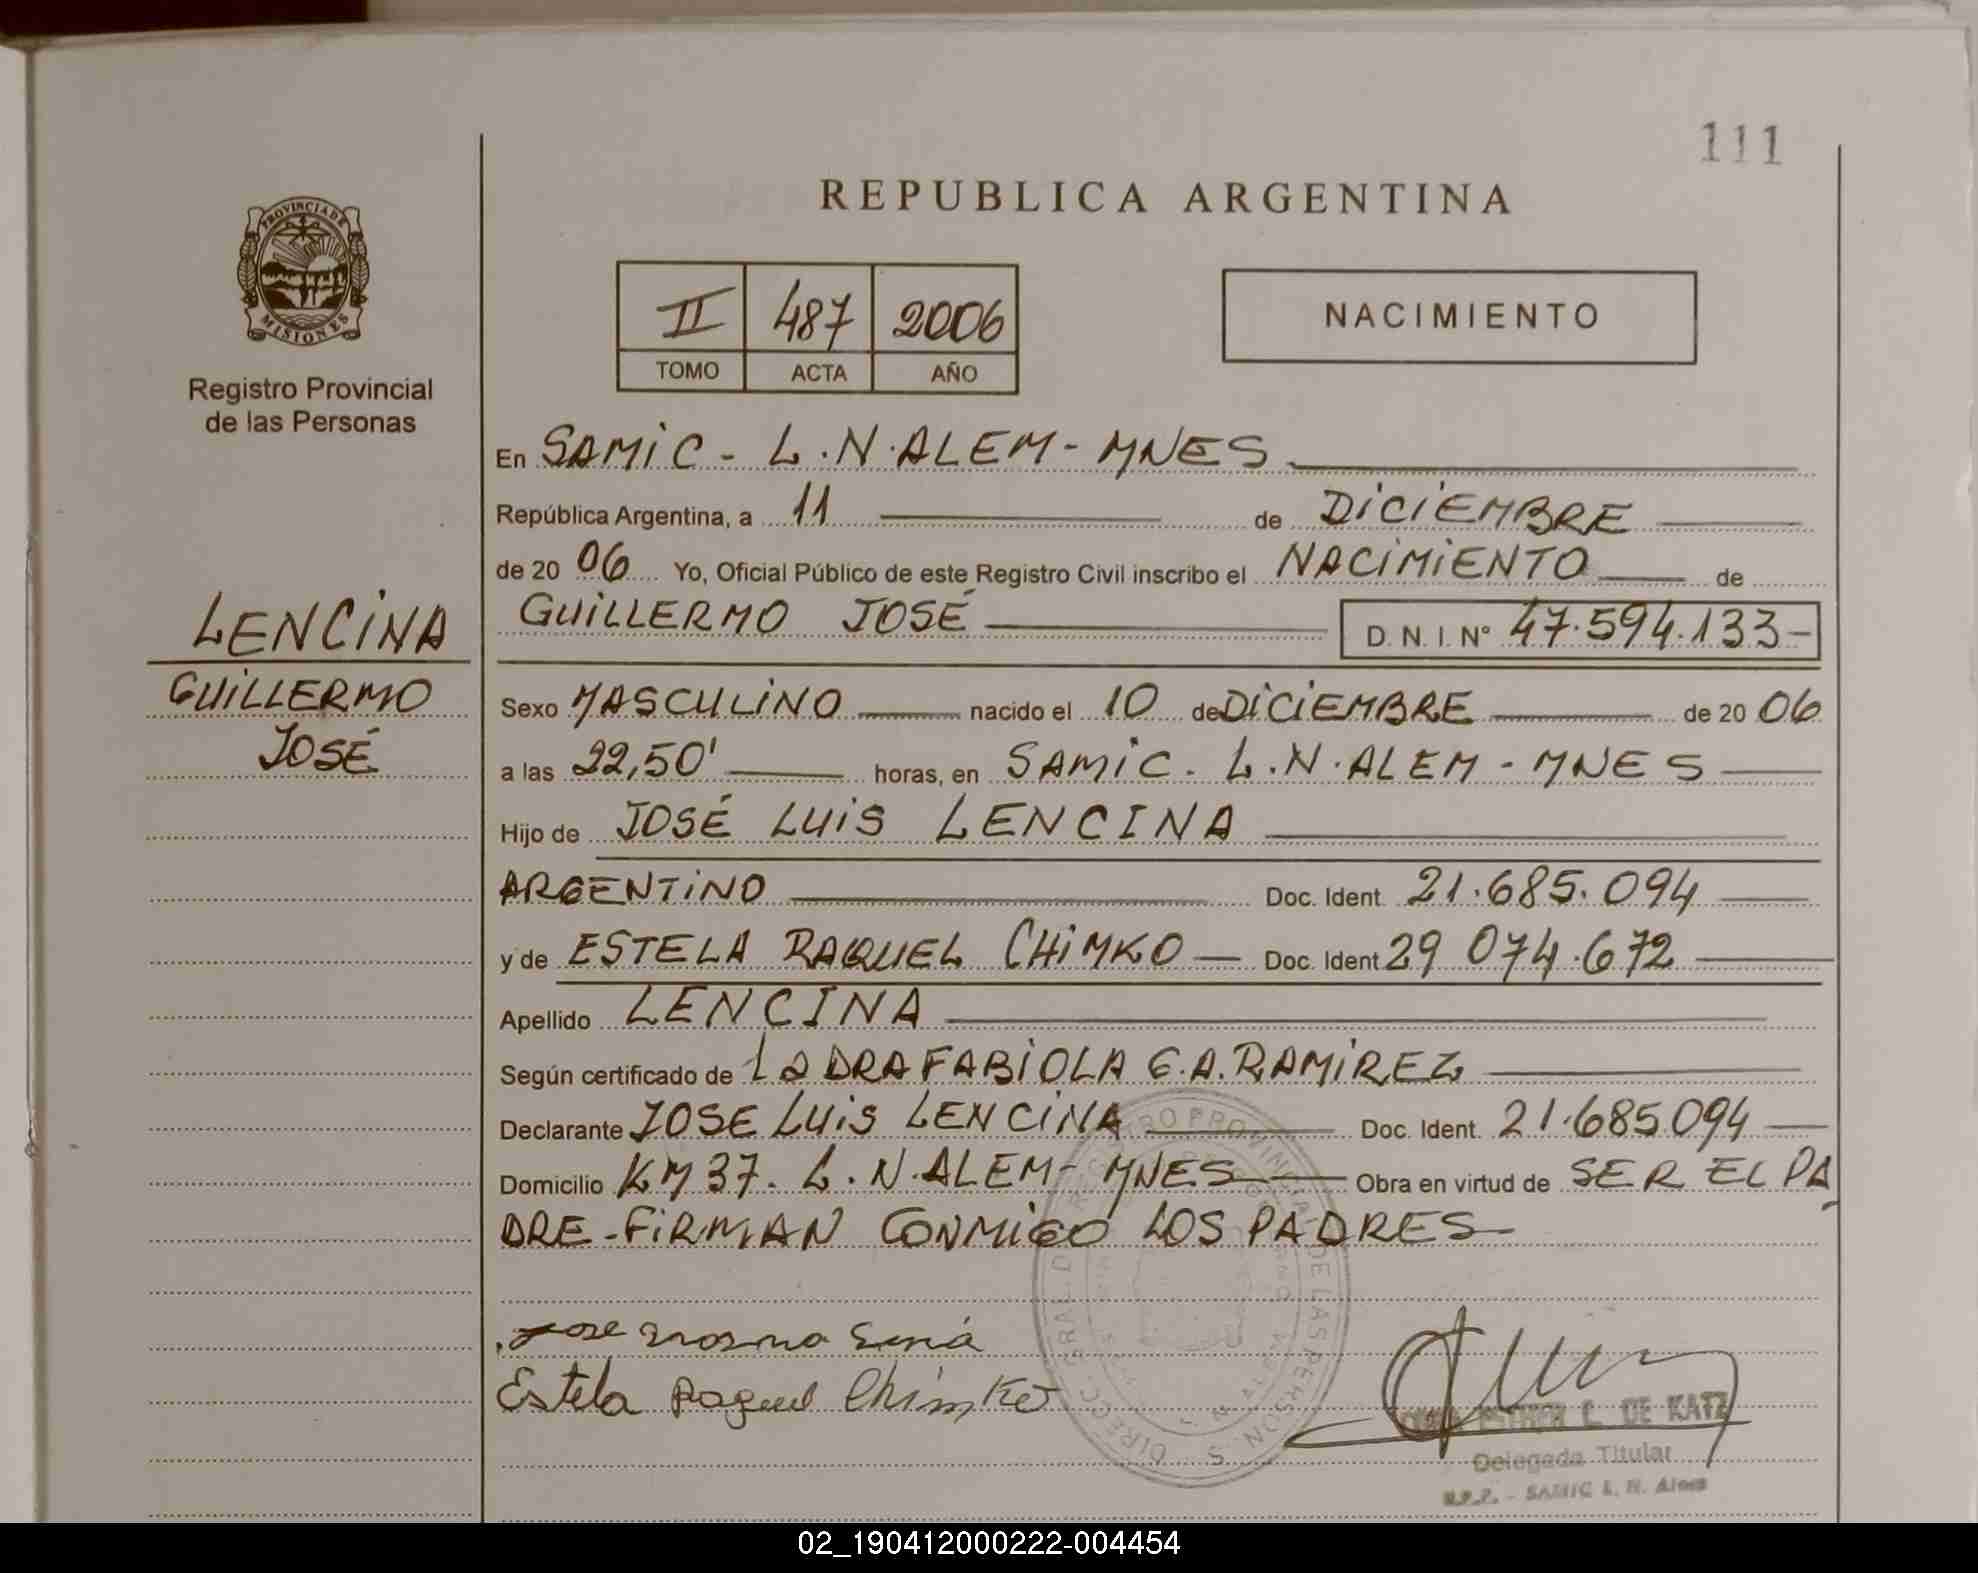 111
REPUBLICA ARGENTINA
PROVINCIA DE
MISIONES
Registro Provincial
de las Personas
II 487 2006
TOMO ACTA AÑO
NACIMIENTO
En SAMiC - L.N.ALEM - MNES
República Argentina, a 11 de DiCiEMBRE
de 20 06 Yo, Oficial Público de este Registro Civil inscribo el NACiMiENTO de
GUiLLERMO JOSÉ D. N. I. N° 47.594.133-
LENCiNA
GUiLLERMO
JOSÉ
Sexo MASCULiNO nacido el 10 de DiCiEMBRE de 20 06
a las 22,50' horas, en SAMiC. L.N.ALEM - MNES
Hijo de JOSÉ LUiS LENCINA
ARGENTiNO Doc. Ident. 21.685.094
y de ESTELA RAQUEL CHiMKO Doc. Ident 29 074.672
Apellido LENCINA
Según certificado de La DRA FABiOLA G.A.RAMiREZ
Declarante JOSE LUiS LENCiNA Doc. Ident. 21.685094
Domicilio KM 37. L.N.ALEM - MNES Obra en virtud de SER EL PA
DRE - FiRMAN CONMiGO LOS PADRES
DIRECC. GRAL. DE REGISTRO PROVINCIAL DE LAS PERSONAS
Jose
Estela Raquel Chimko
ESTHER C. DE KATZ
Delegada Titular
R.P.P. - SAMIC L. N. Alem
02_190412000222-004454